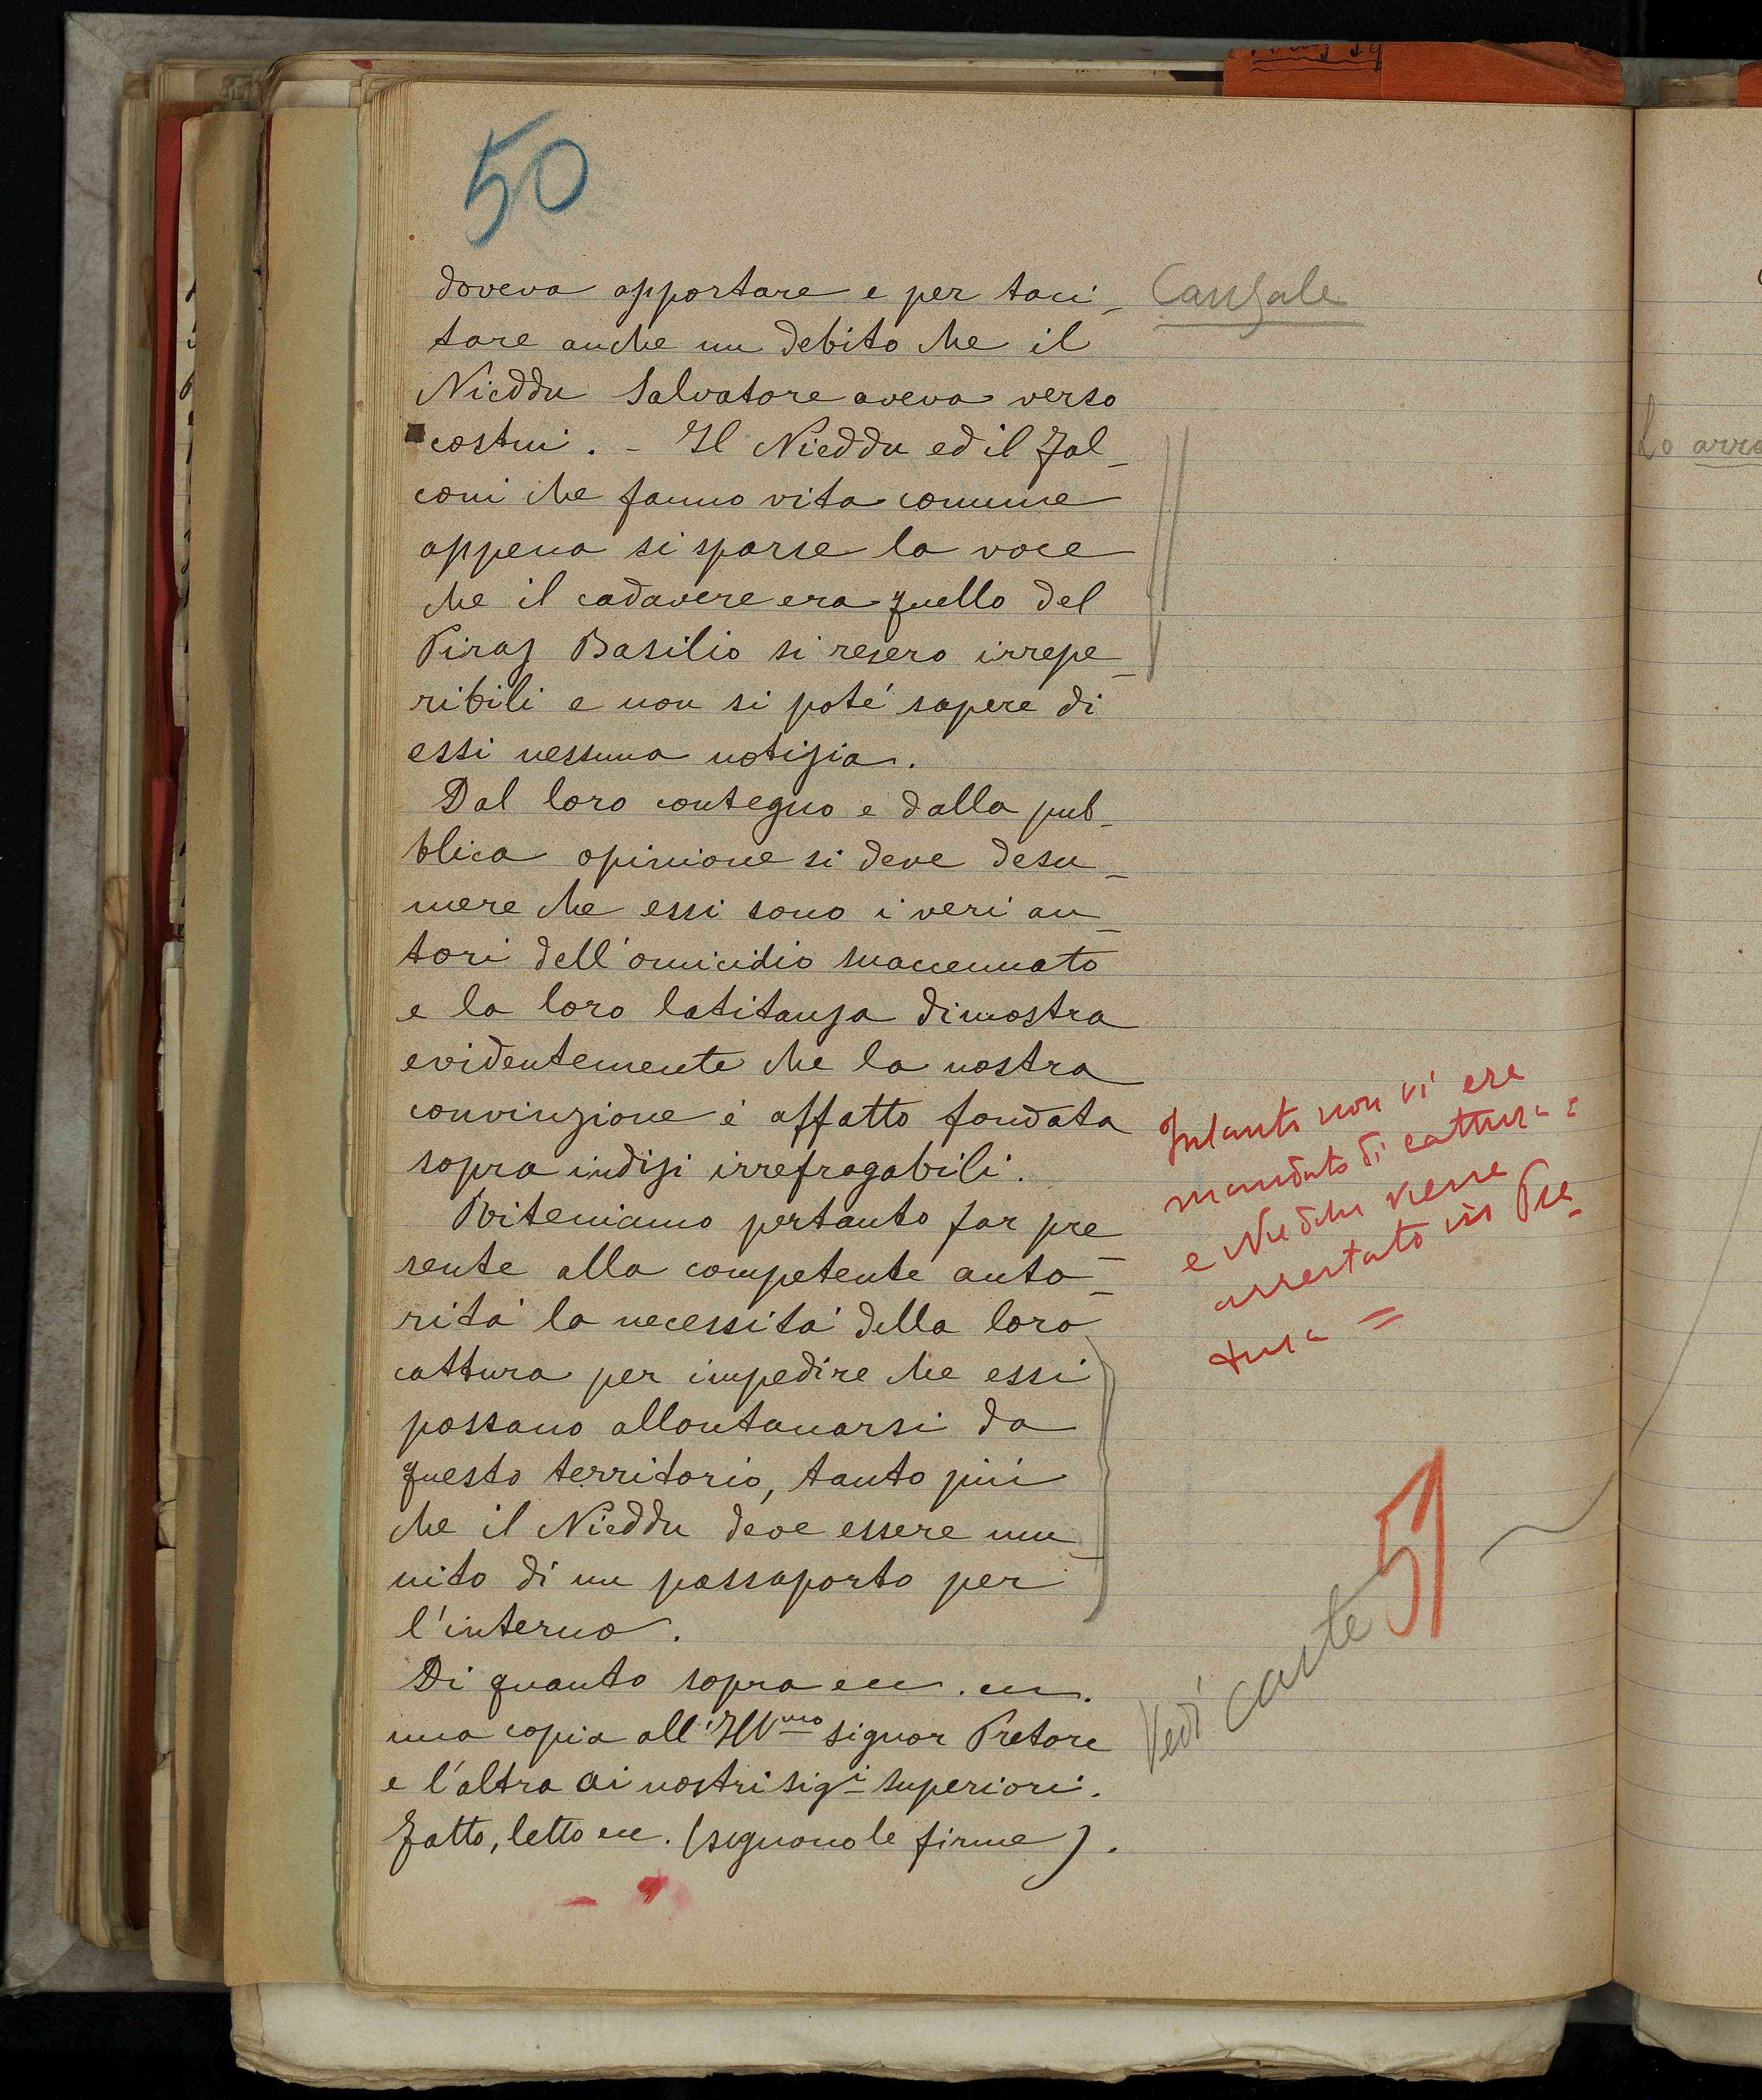 50
doveva apportare e per taci-
tare anche un debito che il
Nieddu Salvatore aveva verso
costui. - Il Nieddu ed il Fal-
coni che fanno vita comune
appena si sparse la voce
che il cadavere era quello del
Piras Basilio si resero irrepe-
ribili e non si poté sapere di
essi nessuna notizia.
Dal loro contegno e dalla pub-
blica opinione si deve desu-
mere che essi sono i veri au-
tori dell'omicidio suaccennato
e la loro latitanza dimostra
evidentemente che la nostra
convinzione è affatto fondata
sopra indizi irrefragabili.
Riteniamo pertanto far pre-
sente alla competente auto-
rità la necessità della loro
cattura per impedire che essi
possano allontanarsi da
questo territorio, tanto più
che il Nieddu deve essere mu-
nito di un passaporto per
l'interno.
Di quanto sopra ecc. ecc.
una copia all'Ill.mo signor Pretore
e l'altra ai nostri sig.i superiori.
Fatto, letto ecc. (seguono le firme).
Causale
Intanto non vi era
mandato di cattura =
e Nieddu venne
arrestato in Pre-
tura =
Vedi carte 51
Lo arre